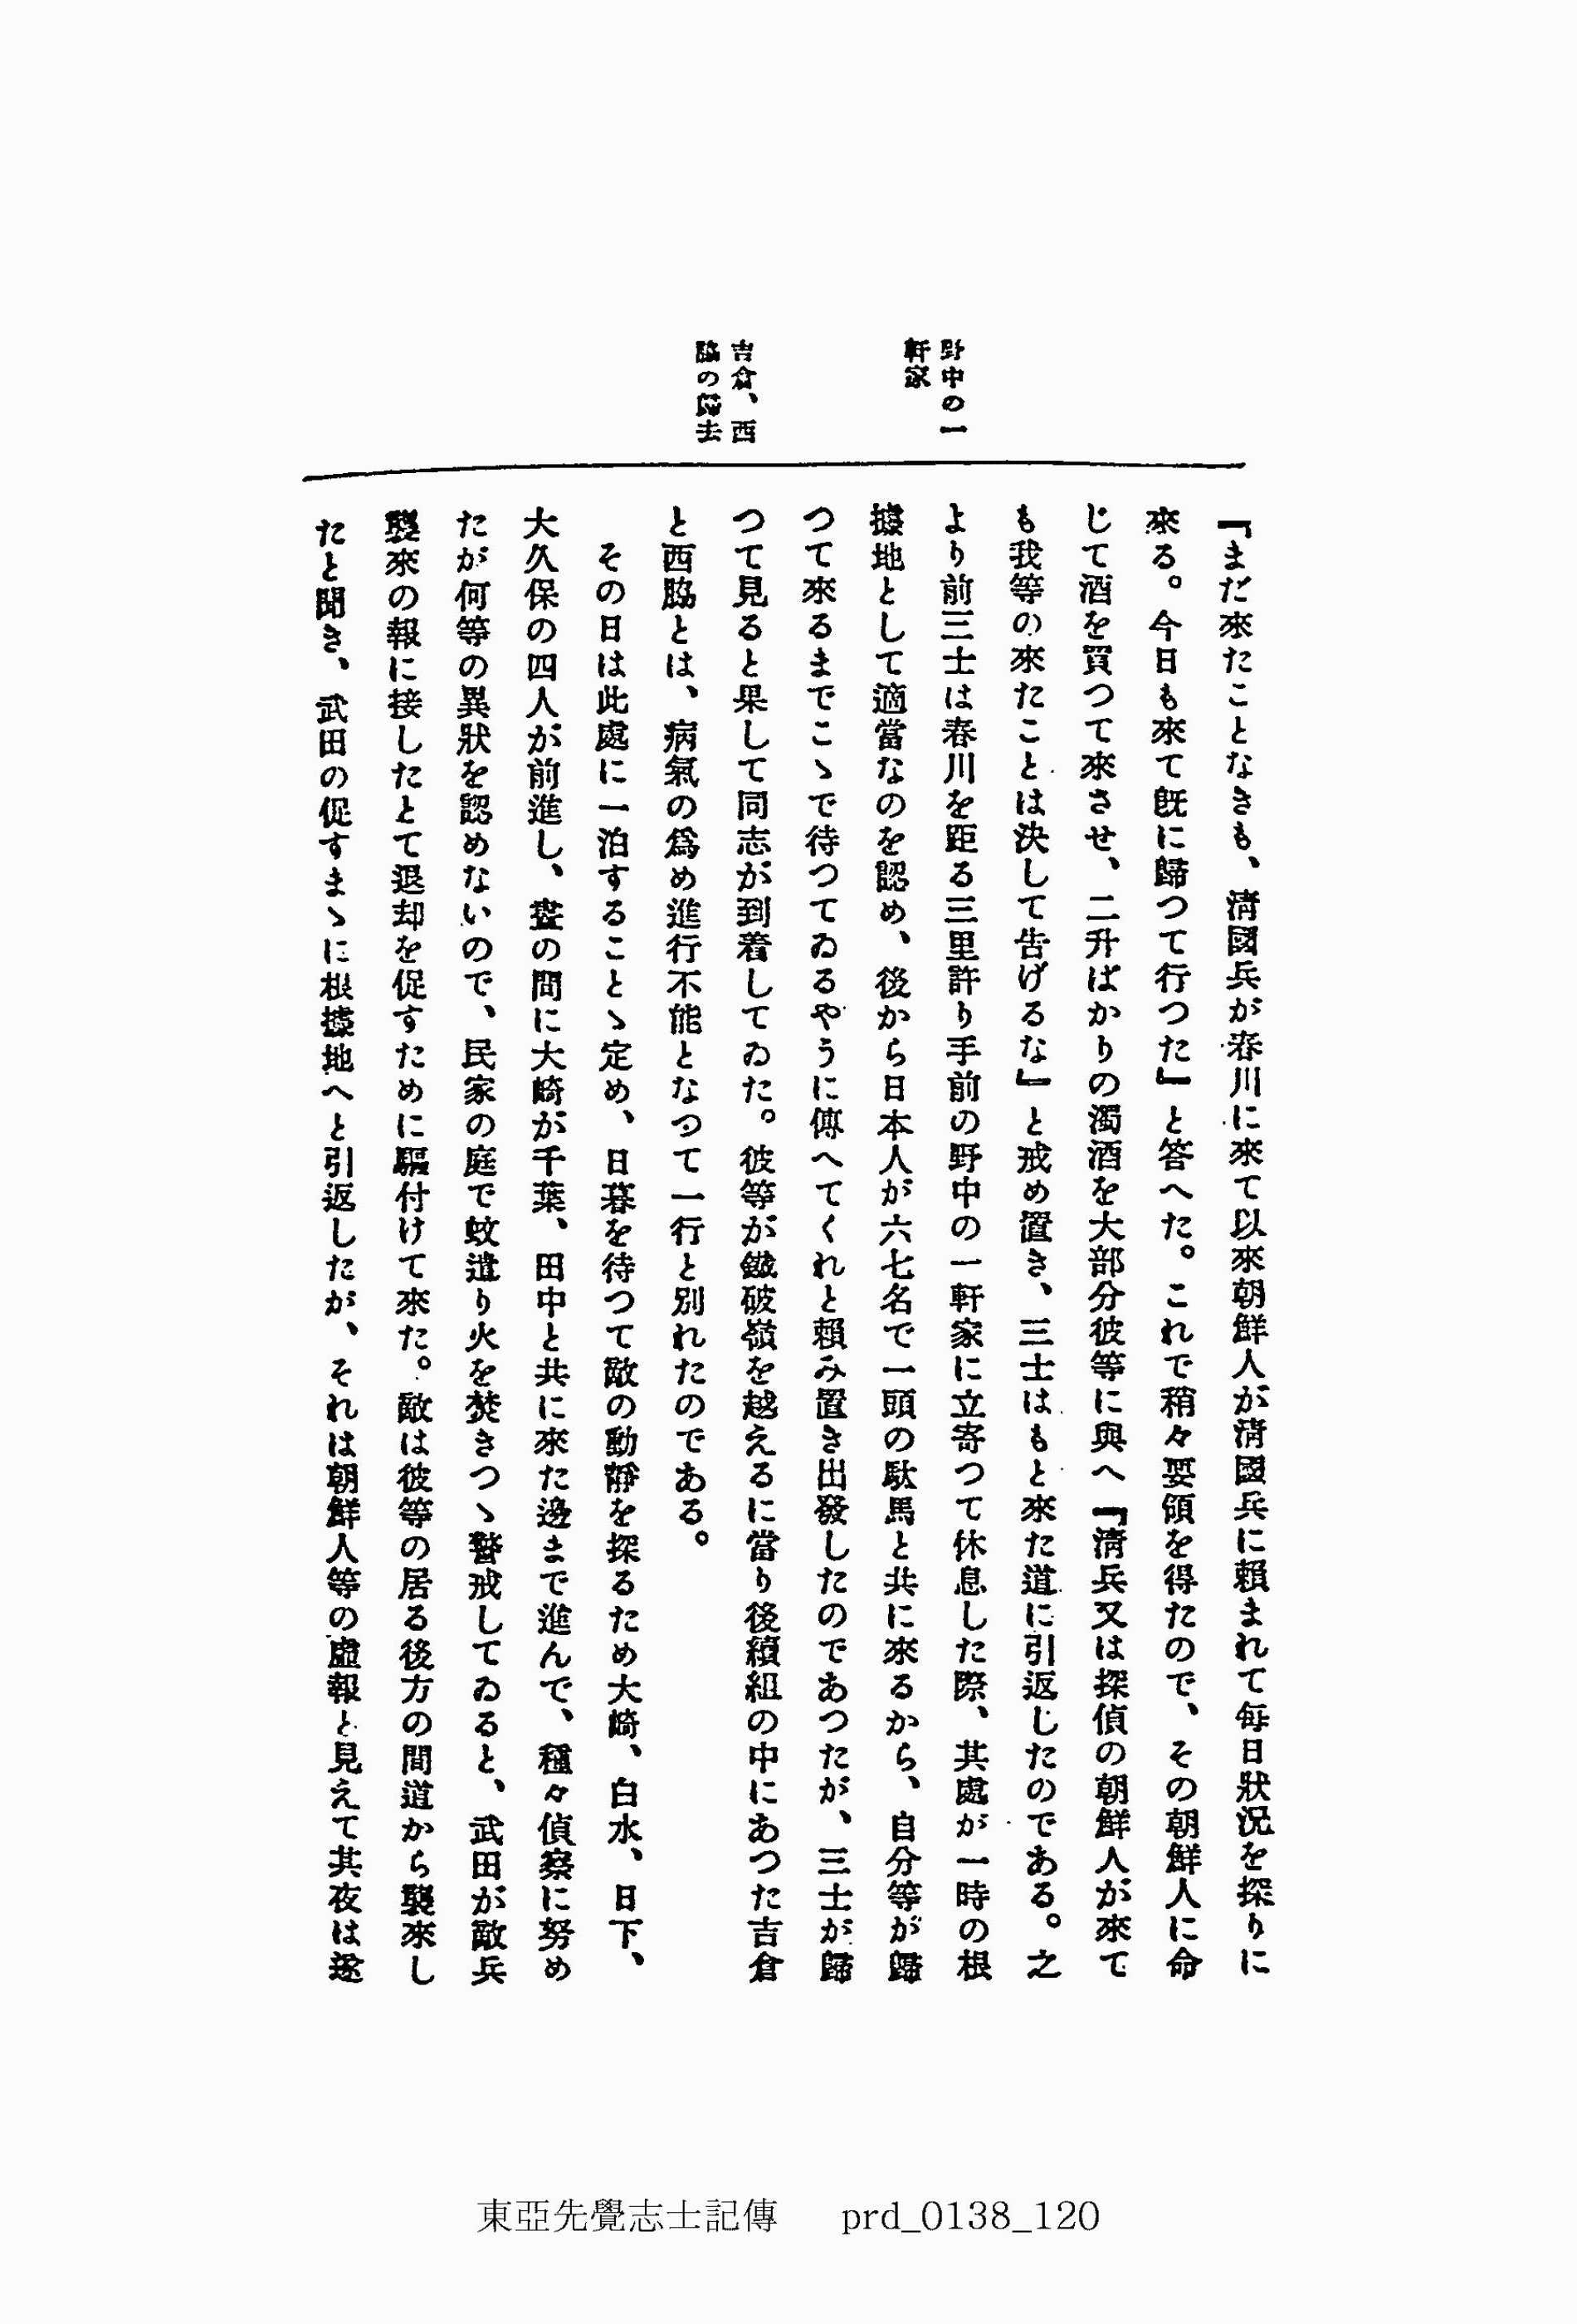 野中の一
軒家
吉倉、西
脇の歸去
『まだ來たことなきも、淸國兵が春川に來て以來朝鮮人が淸國兵に賴まれて每日狀況を探りに
來る。今日も來て旣に歸つて行つた』と答へた。これで稍々要領を得たので、その朝鮮人に命
じて酒を買つて來させ、二升ばかりの濁酒を大部分彼等に與へ『淸兵又は探偵の朝鮮人が來て
も我等の來たことは決して告げるな』と戒め置き、三士はもと來た道に引返したのである。之
より前三士は春川を距る三里許り手前の野中の一軒家に立寄つて休息した際、其處が一時の根
據地として適當なのを認め、後から日本人が六七名で一頭の馱馬と共に來るから、自分等が歸
つて來るまでこゝで待つてゐるやうに傳へてくれと賴み置き出發したのであつたが、三士が歸
つて見ると果して同志が到着してゐた。彼等が鐵破嶺を越えるに當り後續組の中にあつた吉倉
と西脇とは、病氣の爲め進行不能となつて一行と別れたのである。
その日は此處に一泊することゝ定め、日暮を待つて敵の動靜を探るため大崎、白水、日下、
大久保の四人が前進し、晝の間に大崎が千葉、田中と共に來た邊まで進んで、種々偵察に努め
たが何等の異狀を認めないので、民家の庭で蚊遣り火を焚きつゝ警戒してゐると、武田が敵兵
襲來の報に接したとて退却を促すために驅付けて來た。敵は彼等の居る後方の間道から襲來し
たと聞き、武田の促すまゝに根據地へと引返したが、それは朝鮮人等の虛報と見えて其夜は遂
東亞先覺志士記傳 prd_0138_120